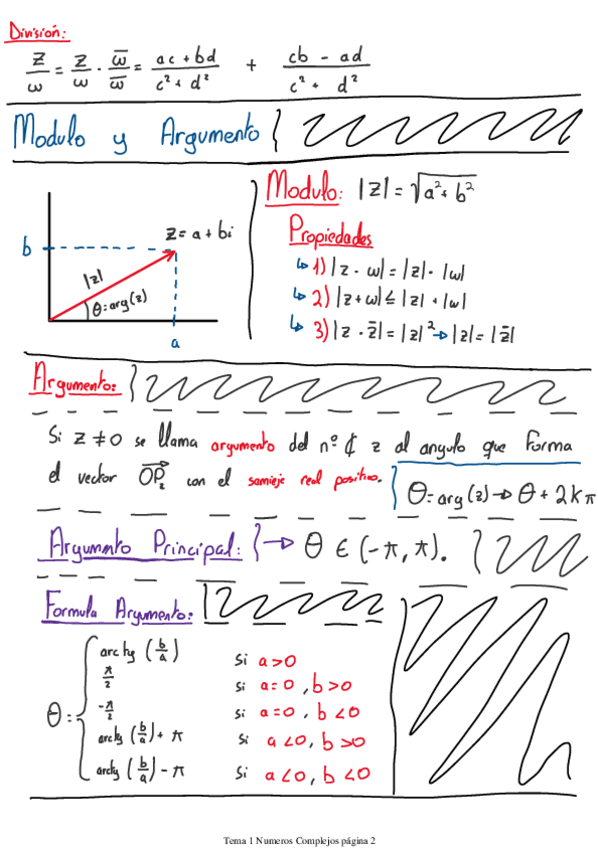 División:
z/ω = z/ω · ω̅/ω̅ = ac + bd / c² + d² + cb - ad / c² + d²
Modulo y Argumento
Modulo: |z| = √a² + b²
z = a + bi
Propiedades
b
|z|
θ = arg(z)
a
↳ 1) |z · ω| = |z| · |ω|
↳ 2) |z + ω| ≤ |z| + |ω|
↳ 3) |z · z̅| = |z|² → |z| = |z̅|
Argumento:
Si z ≠ 0 se llama argumento del nº ₵ z al angulo que forma
el vector OP₂ con el samieje real positivo.
θ = arg(z) → θ + 2kπ
Argumnto Principal: → θ ∈ (-π, π).
Formula Argumento:
θ =
arctg (b/a) si a > 0
π/2 si a = 0, b > 0
-π/2 si a = 0, b < 0
arctg (b/a) + π si a < 0, b > 0
arctg (b/a) - π si a < 0, b < 0
Tema 1 Numeros Complejos página 2